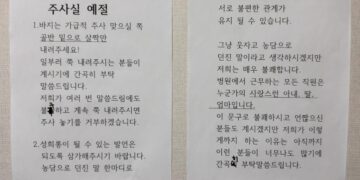 주사실 예절
1.바지는 가급적 주사 맞으실 쪽
골반 밑으로 살짝만
내려주세요!
일부러 쭉 내려주시는 분들이
계시기에 간곡히 부탁
말씀드립니다.
저희가 여러 번 말씀드림에도
하고 계속 쭉 내려주시면
주사 놓기를 거부하겠습니다.
2.성희롱이 될 수 있는 발언은
되도록 삼가해주시기 바랍니다.
농담으로 던진 말 한마디로
서로 불편한 관계가
유지 될 수 있습니다.
그냥 웃자고 농담으로
던진 말이라고 생각하시겠지만
저희는 매우 불쾌합니다.
병원에서 근무하는 모든 직원은
누군가의 사랑스런 아내, 딸,
엄마입니다.
이 문구로 불쾌하시고 언짢으신
분들도 계시겠지만 저희가 이렇
게까지 하는 이유는 아직까지
이런 분들이 너무나도 많기에
간곡히 부탁말씀드립니다.